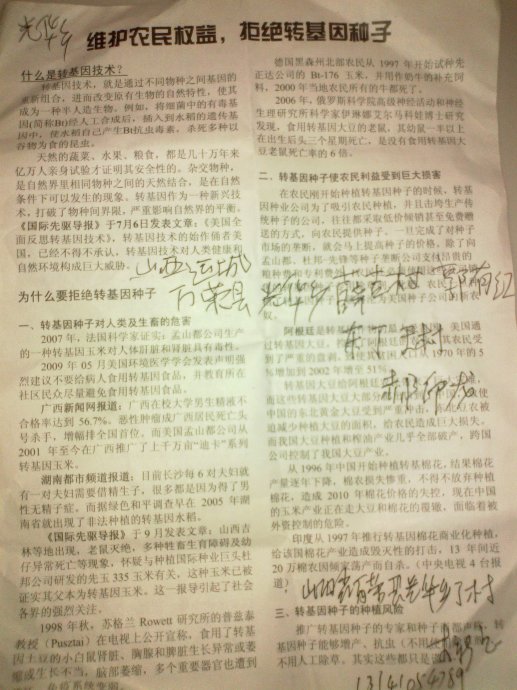 光华乡
维护农民权益，拒绝转基因种子
什么是转基因技术？
转基因技术，就是通过不同物种之间基因的
重新组合，进而改变原有生物的自然特性，使其
成为一种半人造生物。例如，将细菌中的有毒基
因(简称Bt)经人工合成后，插入到水稻的遗传基
因中，使水稻自己产生Bt抗虫毒素，杀死多种以
谷物为食的昆虫。
天然的蔬菜、水果、粮食，都是几十万年来
亿万人亲身试验才证明其安全性的。杂交物种，
是自然界里相同物种之间的天然结合，是在自然
条件下可以发生的现象。转基因作为一种新兴技
术，打破了物种间界限，严重影响自然界的平衡。
《国际先驱导报》于7月6日发表文章：《美国全
面反思转基因技术》，转基因技术的始作俑者美
国，已经不得不承认，转基因技术对人类健康和
自然环境构成巨大威胁。
山西运城
万荣县 光华乡
为什么要拒绝转基因种子
一、转基因种子对人类及生畜的危害
2007年，法国科学家证实：孟山都公司生产
的一种转基因玉米对人体肝脏和肾脏具有毒性。
2009年05月美国环境医学学会发表声明强
烈建议不要给病人食用转基因食品，并教育所在
社区民众尽量避免食用转基因食品。
广西新闻网报道：广西在校大学男生精液不
合格率达到56.7%。恶性肿瘤成广西居民死亡头
号杀手，增幅排全国首位。而美国孟山都公司从
2001年至今在广西推广了上千万亩“迪卡”系列
转基因玉米。
湖南都市频道报道：目前长沙每6对夫妇就
有一对夫妇需要借精生子，很多都是因为得了男
性无精子症。而据绿色和平调查早在2005年湖
南省就出现了非法种植的转基因水稻。
《国际先驱导报》于9月发表文章：山西吉
林等地出现，老鼠灭绝，多种牲畜生育障碍及幼
仔异常死亡等现象，怀疑与种植国际种业巨头杜
邦公司研发的先玉335玉米有关，这种玉米已被
证实其父本为转基因玉米。这一报导引起了社会
各界的强烈关注。
1998年秋，苏格兰Rowett研究所的普兹泰
教授（Pusztai）在电视上公开宣称，食用了转基
因土豆的小白鼠肾脏、胸腺和脾脏生长异常或萎
缩或生长不当，脑部萎缩，多个重要器官也遭到
德国黑森州北部农民从1997年开始试种先
正达公司的Bt-176玉米，并用作奶牛的补充饲
料，2000年当地农民所有的牛都死了。
2006年，俄罗斯科学院高级神经活动和神经
生理研究所科学家伊琳娜艾尔马科娃博士研究
发现，食用转基因大豆的老鼠，其幼鼠一半以上
在出生后头三个星期死亡，是没有食用转基因大
豆老鼠死亡率的6倍。
二、转基因种子使农民利益受到巨大损害
在农民刚开始种植转基因种子的时候，转基
因种业公司为了吸引农民种植，并且击垮生产传
统种子的公司，往往都采取低价倾销甚至免费赠
送的方式，向农民提供种子。一旦完成了对种子
市场的垄断，就会马上提高种子的价格。除了向
孟山都、杜邦-先锋等种子垄断公司支付昂贵的
美国通
过转基因大豆，
到了严重的盘剥，
1970年的5
%增加到2002年增至51%。
转基因大豆给阿根廷
而这些转基因大豆大部分
中国的东北黄金大豆受到严重冲击，东北豆农被
迫减少种植大豆的面积，给农民造成巨大损失。
而我国大豆种植和榨油产业几乎全部破产，跨国
公司控制了我国大豆产业。
从1996年中国开始种植转基因棉花，结果棉花
产量逐年下降，棉农损失惨重，不得不放弃种植
棉花，造成2010年棉花价格的失控，现在中国
的玉米产业正在走大豆和棉花的覆辙，面临着被
外资控制的危险。
印度从1997年推行转基因棉花商业化种植，
给该国棉花产业造成毁灭性的打击，13年间近
20万棉农因倾家荡产而自杀。（中央电视4台报
道）
三、转基因种子的种植风险
推广转基因种子的专家和种子商都声称，转
基因种子能够增产、抗虫（不用
不用人工除草。其实这些都只是谎